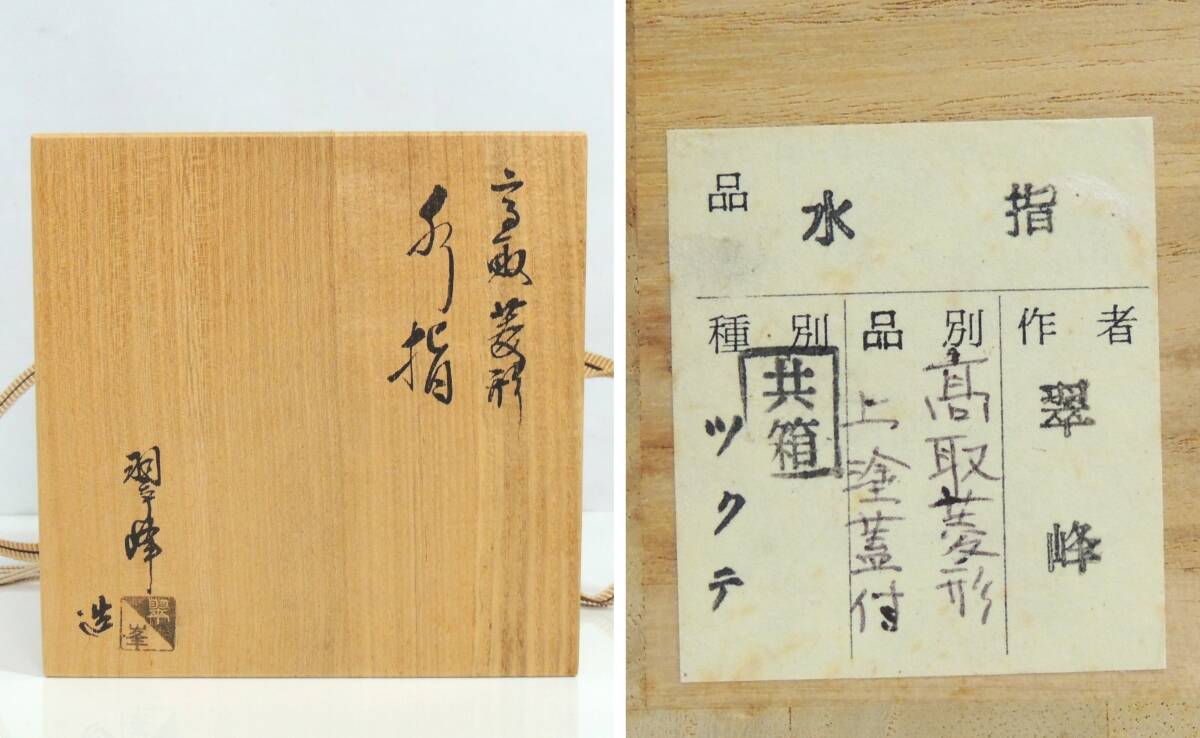 高取菱形
水指
翠峰
造
翠峯
品 水指
作者
翠峰
品別
高取菱形
上塗蓋付
種別
共箱
ツクテ